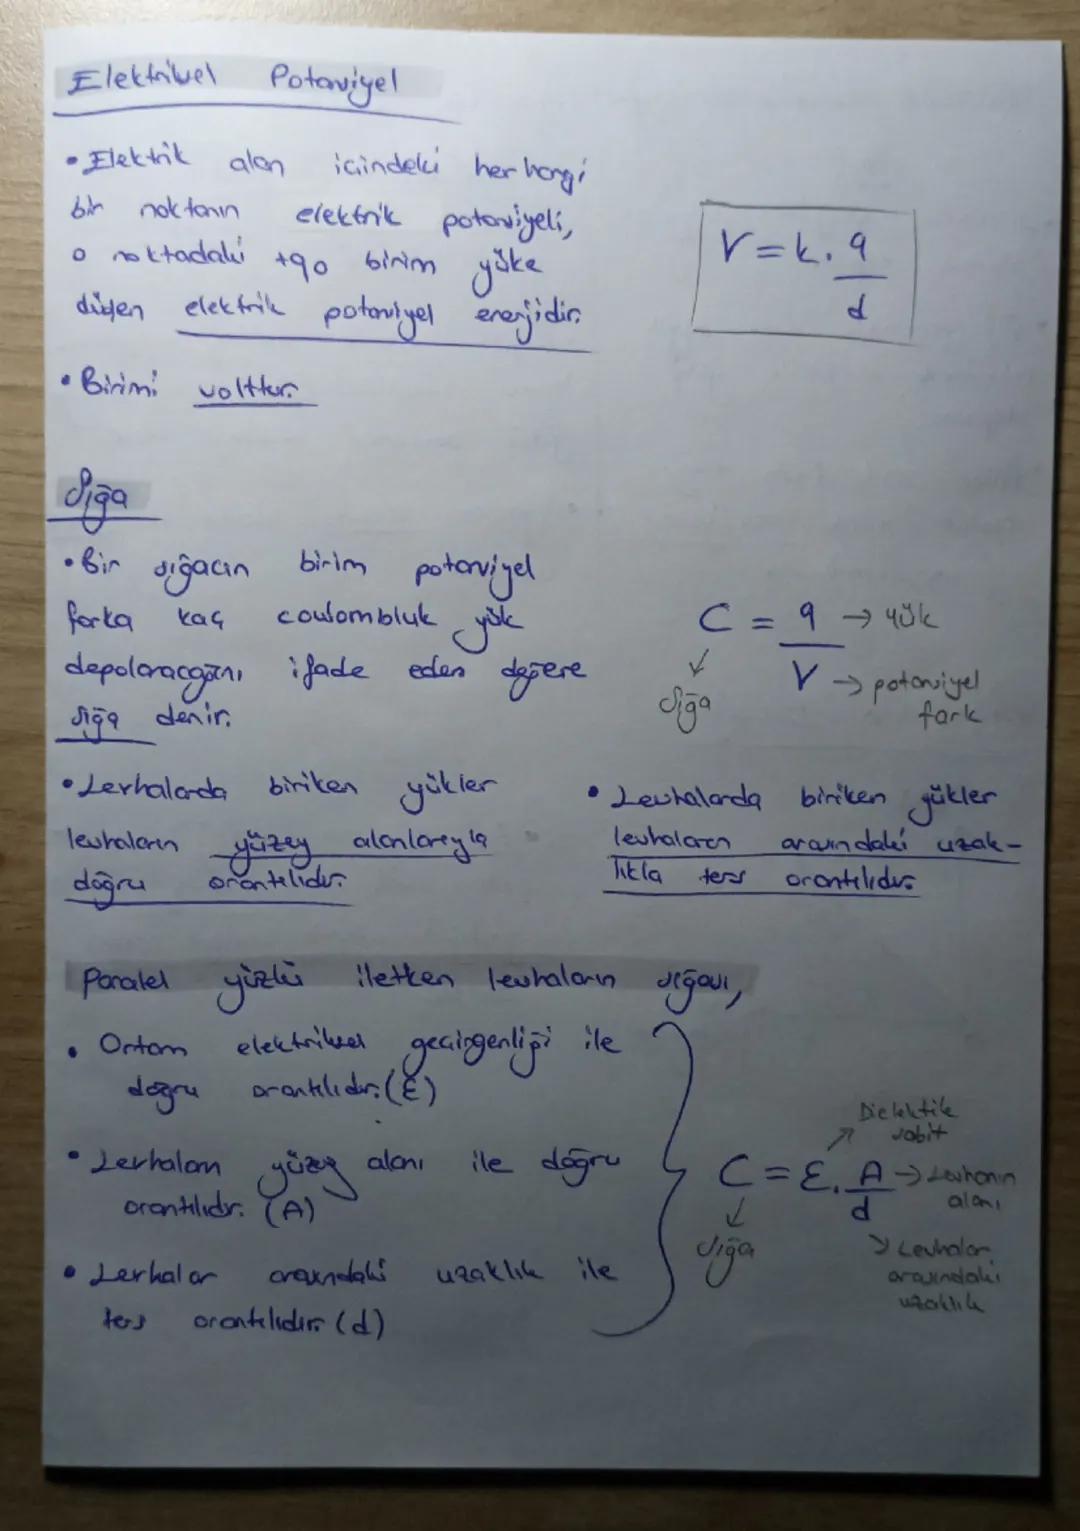 Elektriksel Potansiyel
• Elektrik alan içindeki herhangi
bir noktanın elektrik potansiyeli,
o noktadaki +q0 birim yüke
düşen elektrik potansiyel enerjidir.
V = k. q
d
• Birimi volttur.
Sığa
• Bir sığacın birim potansiyel
farka kaç coulombluk yük
depolaracağını ifade eden değere
sığa denir.
C = q → yük
V → potansiyel
fark
Sığa
• Levhalarda biriken yükler
levhaların yüzey alanlarıyla
doğru orantılıdır.
• Levhalarda biriken yükler
levhaların arasındaki uzak-
lıkla ters orantılıdır.
Paralel yüzlü iletken levhaların sığası,
• Ortam elektriksel geçirgenliği ile
doğru orantılıdır. (ε)
• Levhaların yüzey alanı ile doğru
orantılıdır. (A)
• Levhalar arasındaki uzaklık ile
ters orantılıdır. (d)
Dielektik
sabit
C = ε. A → Levhanın
d alanı
Sığa
Levhalar
arasındaki
uzaklık